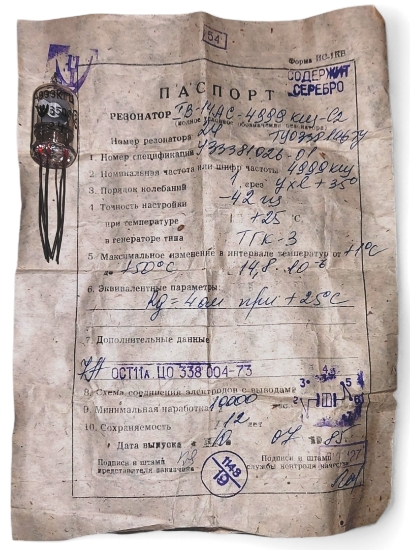 54
Форма ПС-1КВ
СОДЕРЖИТ
СЕРЕБРО
ПАСПОРТ
РЕЗОНАТОР ГВ-14АС-4999 кгц-С2
Номер резонатора
1. Номер спецификации
2. Номинальная частота или шифр частоты 4999 кгц
3. Порядок колебаний 1, срез ухl+35°
4 Точность настройки -42 гц
при температуре +25 °С
в генераторе типа ТГК-3
5 Максимальное изменение в интервале температур от +1°С
до +50°С 14,8·10⁻⁶
6. Эквивалентные параметры:
Rд = 4 ом при +25°С
7. Дополнительные данные
ОСТ11А ЦО 338 004-73
8. Схема соединения электродов с выводами
3 2 4 5
9. Минимальная наработка 10000 час
10. Сохраняемость 12 лет
Дата выпуска 07 1985
Подписи и штамп
представителя заказчика
1148
19
Подписи и штамп
службы контроля качества